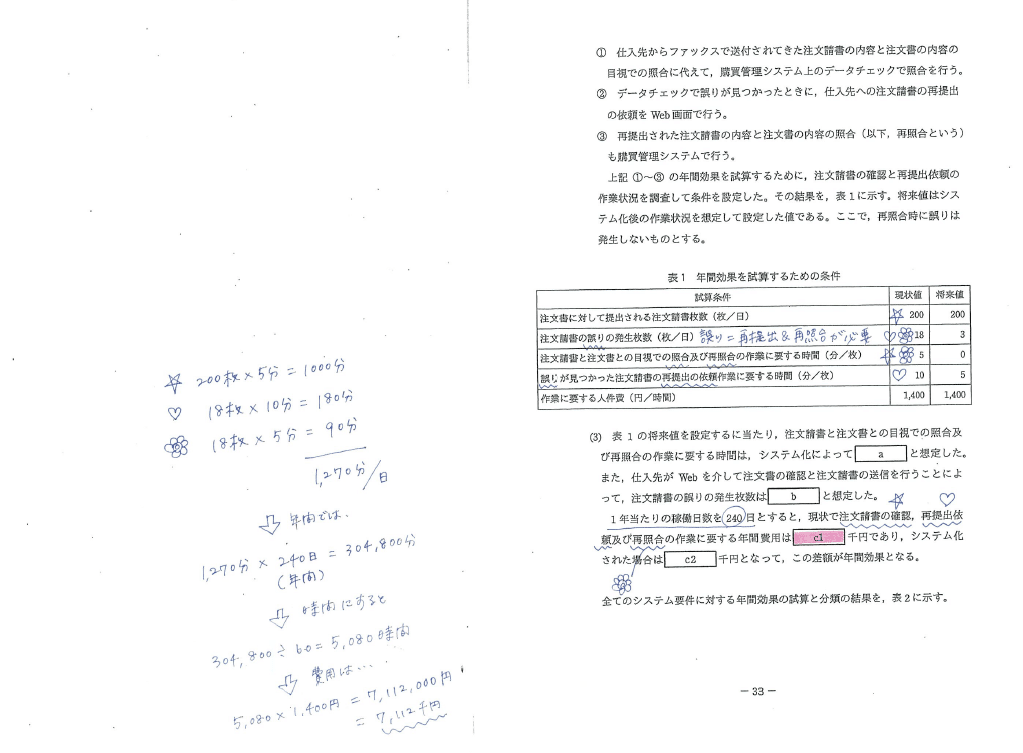 ☆ 200枚×5分=1000分
♡ 18枚×10分=180分
18枚×5分=90分
1,270分/日
⇩ 年間では、
1,270分×240日=304,800分
(年間)
⇩ 時間にすると
304,800÷60=5,080時間
⇩ 費用は…
5,080×1,400円=7,112,000円
=7,112千円
① 仕入先からファックスで送付されてきた注文請書の内容と注文書の内容の
目視での照合に代えて，購買管理システム上のデータチェックで照合を行う。
② データチェックで誤りが見つかったときに，仕入先への注文請書の再提出
の依頼を Web 画面で行う。
③ 再提出された注文請書の内容と注文書の内容の照合（以下，再照合という）
も購買管理システムで行う。
上記 ①～③ の年間効果を試算するために，注文請書の確認と再提出依頼の
作業状況を調査して条件を設定した。その結果を，表 1 に示す。将来値はシス
テム化後の作業状況を想定して設定した値である。ここで，再照合時に誤りは
発生しないものとする。
表 1 年間効果を試算するための条件
試算条件 現状値 将来値
注文書に対して提出される注文請書枚数（枚／日） ☆ 200 200
注文請書の誤りの発生枚数（枚／日） 誤り=再提出&再照合が必要 ♡ 18 3
注文請書と注文書との目視での照合及び再照合の作業に要する時間（分／枚） ☆ 5 0
誤りが見つかった注文請書の再提出の依頼作業に要する時間（分／枚） ♡ 10 5
作業に要する人件費（円／時間） 1,400 1,400
(3) 表 1 の将来値を設定するに当たり，注文請書と注文書との目視での照合及
び再照合の作業に要する時間は，システム化によって a と想定した。
また，仕入先が Web を介して注文書の確認と注文請書の送信を行うことによ
って，注文請書の誤りの発生枚数は b と想定した。 ☆ ♡
1 年当たりの稼働日数を 240 日とすると，現状で注文請書の確認，再提出依
頼及び再照合の作業に要する年間費用は c1 千円であり，システム化
された場合は c2 千円となって，この差額が年間効果となる。
全てのシステム要件に対する年間効果の試算と分類の結果を，表 2 に示す。
－ 33 －